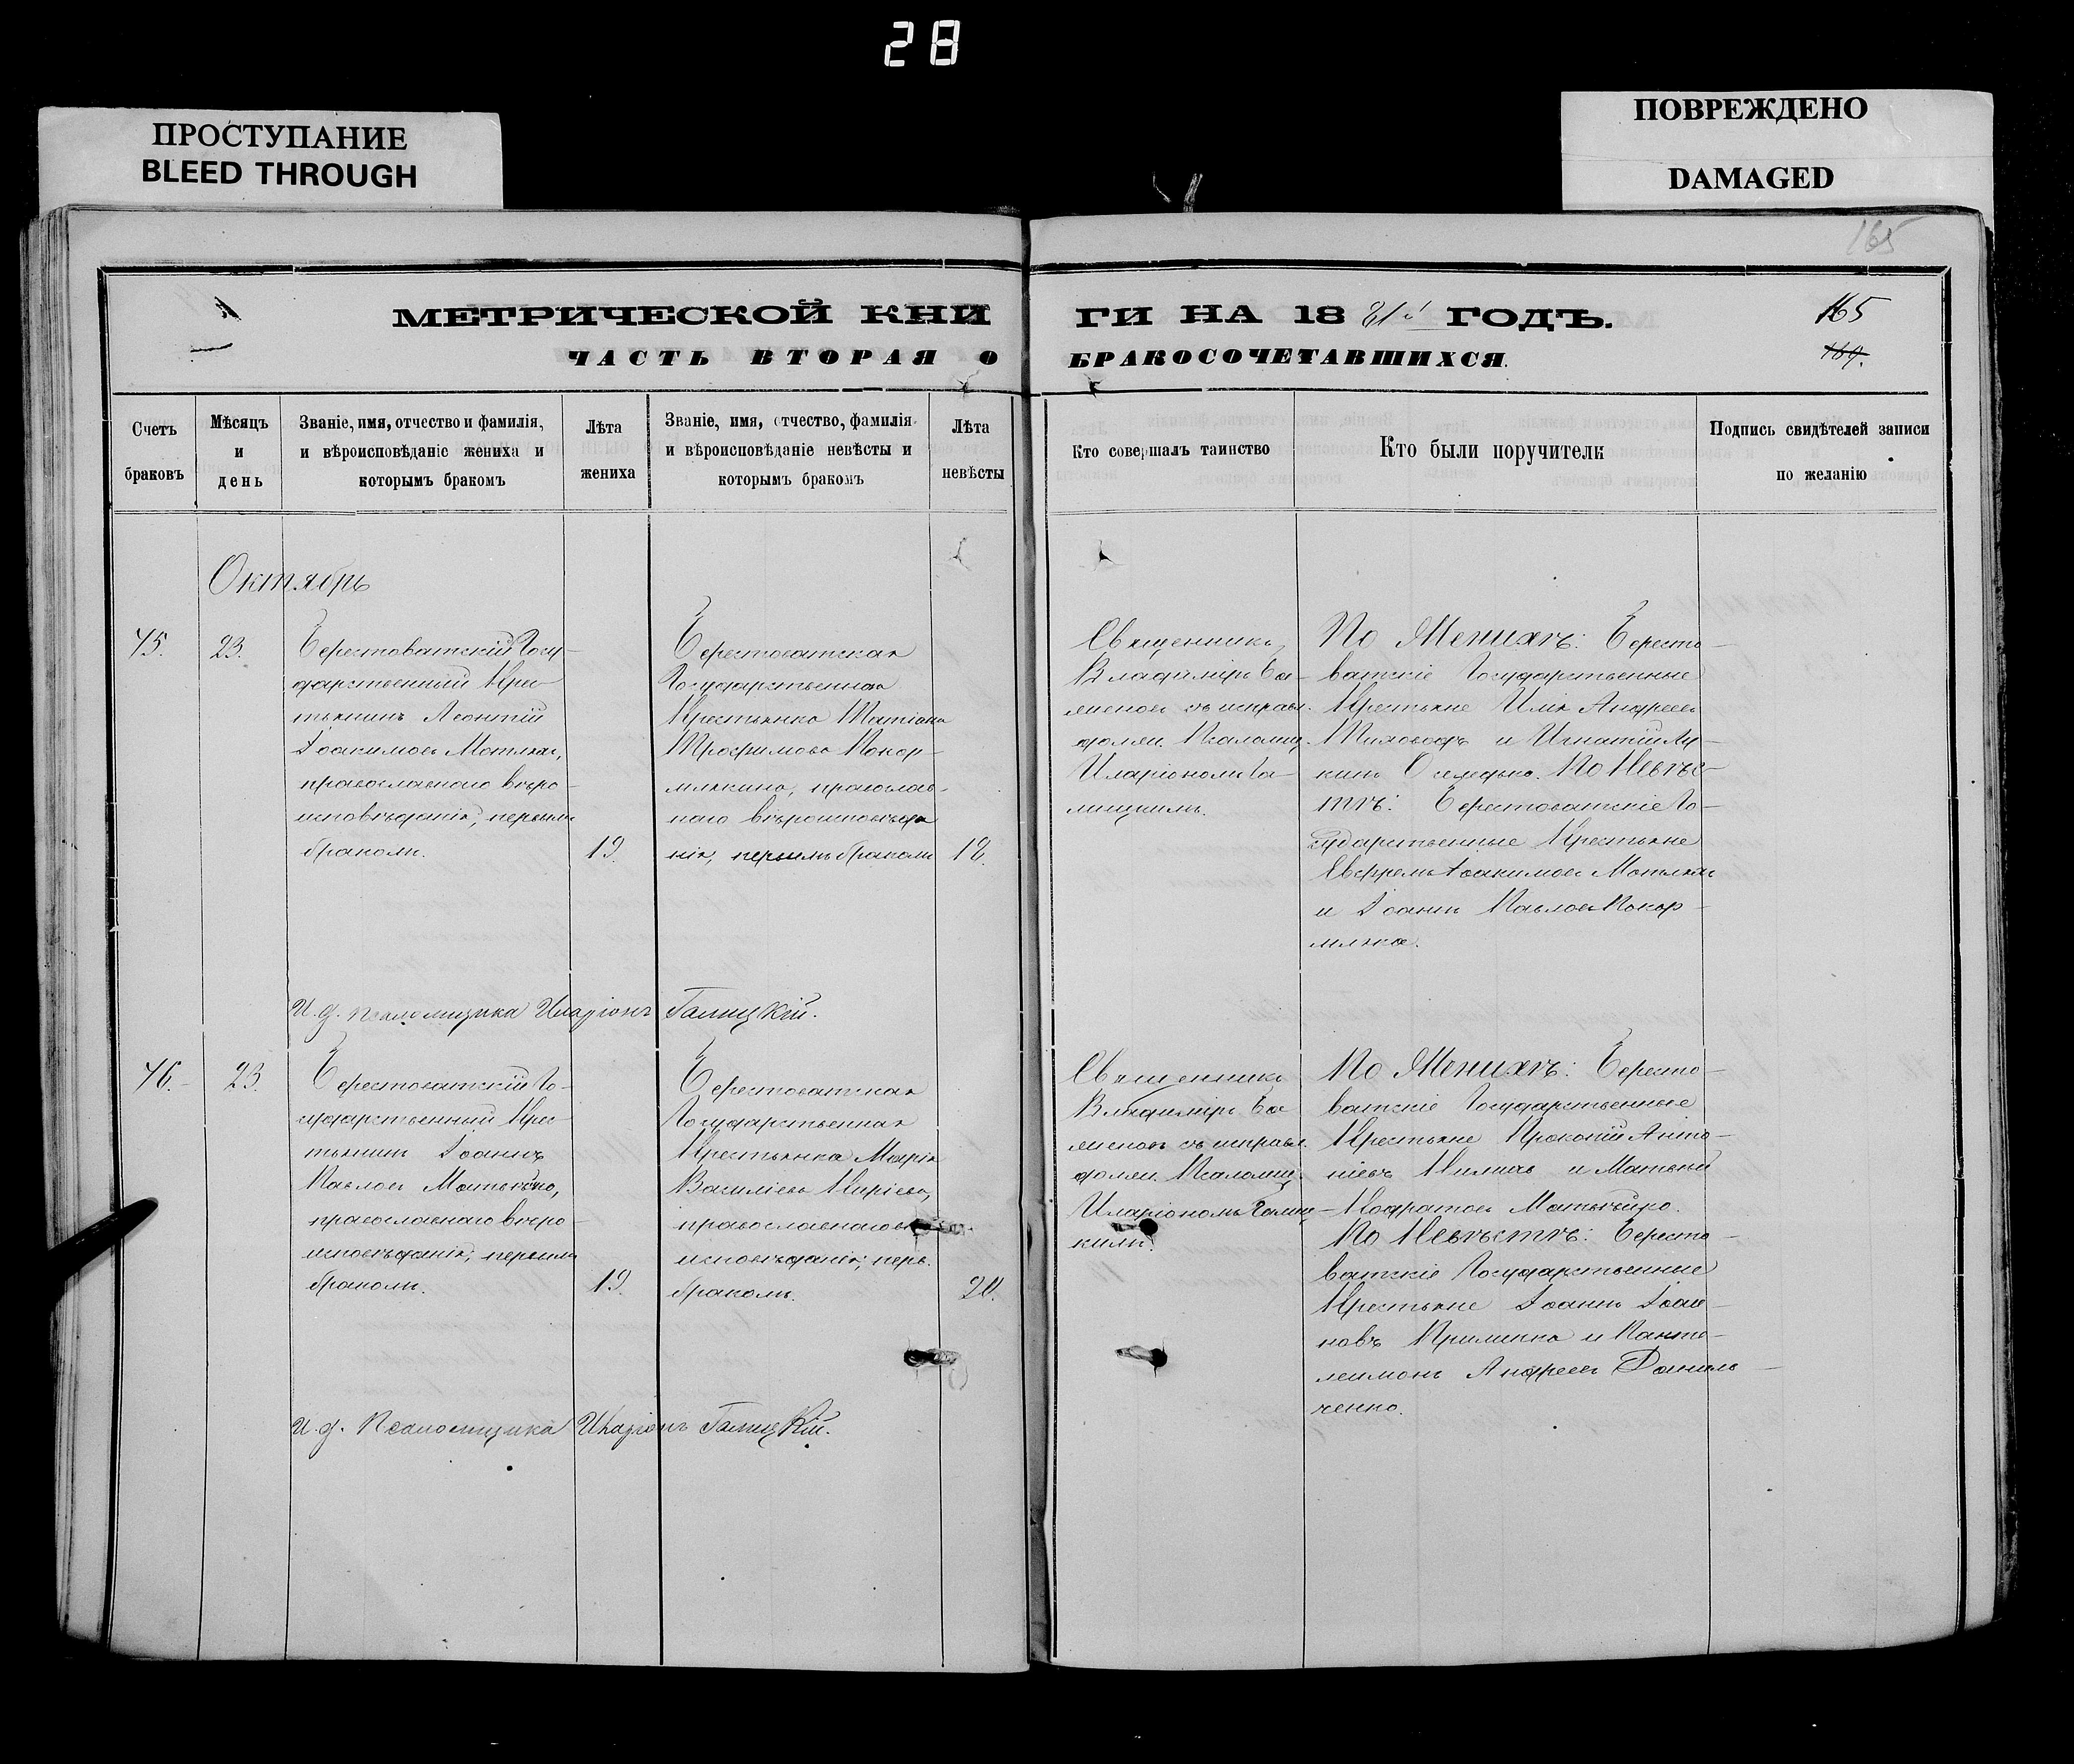 28
ПРОСТУПАНИЕ
BLEED THROUGH
ПОВРЕЖДЕНО
DAMAGED
165
МЕТРИЧЕСКОЙ КНИ
ГИ НА 18 81й ГОДЪ.
165
169.
ЧАСТЬ ВТОРАЯ О
БРАКОСОЧЕТАВШИХСЯ.
Счетъ
браковъ
Мѣсяцъ
и
день
Званіе, имя, отчество и фамилія,
и вѣроисповѣданіе жениха и
которымъ бракомъ
Лѣта
жениха
Званіе, имя, отчество, фамилія
и вѣроисповѣданіе невѣсты и
которымъ бракомъ
Лѣта
невѣсты
Кто совершалъ таинство
Кто были поручители
Подпись свидѣтелей записи
по желанію
Октябрь
45.
23.
Берестоватскій Госу-
дарственный Крес-
тьянинъ Леонтій
Іоакимовъ Мотляхъ,
православнаго вѣро-
исповѣданія, первымъ
бракомъ.
19.
Берестоватская
Государственная
Крестьянка Татіана
Трофимова Покор-
млякина, православ-
наго вѣроисповѣда
нія, первымъ бракомъ
18.
Священникъ
Владиміръ Ба-
меновъ съ исправл.
должн. Псаломщ.
Иларіономъ Га-
лицкимъ.
По Женихѣ: Бересто-
ватскіе Государственные
Крестьяне Илія Андреевъ
и Игнатій Лу-
кинъ Оселедько. По Невѣс-
тѣ: Берестоватскіе Го-
сударственные Крестьяне
Евфремъ Іоакимовъ Мотляхъ
и Іоаннъ Павловъ Покор-
мляка.
И. д. псаломщика Иларіонъ Галицкій.
46.
23.
Берестоватскій Го-
сударственный Крес-
тьянинъ Іоаннъ
Павловъ Матвѣйко,
православнаго вѣро-
исповѣданія, первымъ
бракомъ.
19.
Берестоватская
Государственная
Крестьянка Марія
Василіева Киріева,
православнаго вѣ
исповѣданія, перв.
бракомъ.
20.
Священникъ
Владиміръ Ба
меновъ съ исправл.
должн. Псаломщ.
Иларіономъ Галиц-
кимъ.
По Женихѣ: Бересто-
ватскіе Государственные
Крестьяне Прокопій Анто-
ніевъ и Матвѣй
Кодратовъ Матвѣйко.
По Невѣстѣ: Бересто-
ватскіе Государственные
Крестьяне Іоаннъ Іоан-
новъ и Панте-
леимонъ Андреевъ Даниль-
ченко.
И. д. Псаломщика Иларіонъ Галицкій.